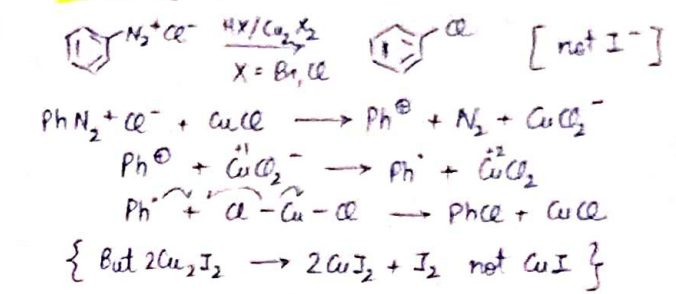 N₂⁺Cl⁻ HX/Cu₂X₂ X = Br, Cl Cl [not I⁻]
PhN₂⁺Cl⁻ + CuCl ⟶ Ph⊕ + N₂ + CuCl₂⁻
Ph⊕ + Cu⁺¹Cl₂⁻ ⟶ Ph• + Cu⁺²Cl₂
Ph• + Cl–Cu–Cl ⟶ PhCl + CuCl
{But 2Cu₂I₂ ⟶ 2CuI₂ + I₂ not CuI}